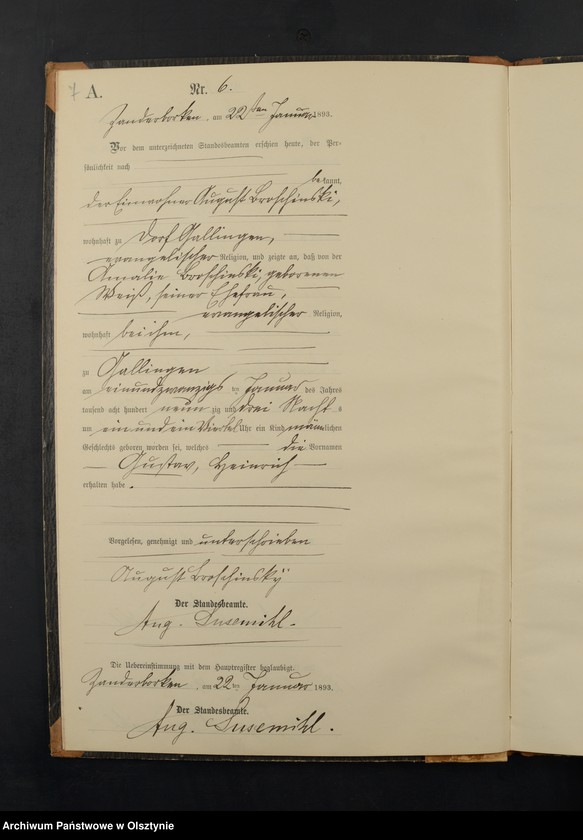 7 A. Nr. 6.
Zanderborken, am 22ten Januar 1893.
Vor dem unterzeichneten Standesbeamten erschien heute, der Per-
sönlichkeit nach
bekannt,
der Einwohner August Broschinski,
wohnhaft zu Dorf Gallingen,
evangelischer Religion, und zeigte an, daß von der
Amalie Broschinski, geborenen
Weiß, seiner Ehefrau,
evangelischer Religion,
wohnhaft bei ihm,
zu Gallingen
am einundzwanzigsten Januar des Jahres
tausend acht hundert neunzig und drei Nachts
um ein und ein Viertel Uhr ein Kind männlichen
Geschlechts geboren worden sei, welches die Vornamen
Gustav, Heinrich
erhalten habe.
Vorgelesen, genehmigt und unterschrieben
August Broschinsky
Der Standesbeamte.
Aug. Susemihl.
Die Uebereinstimmung mit dem Hauptregister beglaubigt.
Zanderborken, am 22ten Januar 1893.
Der Standesbeamte.
Aug. Susemihl.
Archiwum Państwowe w Olsztynie